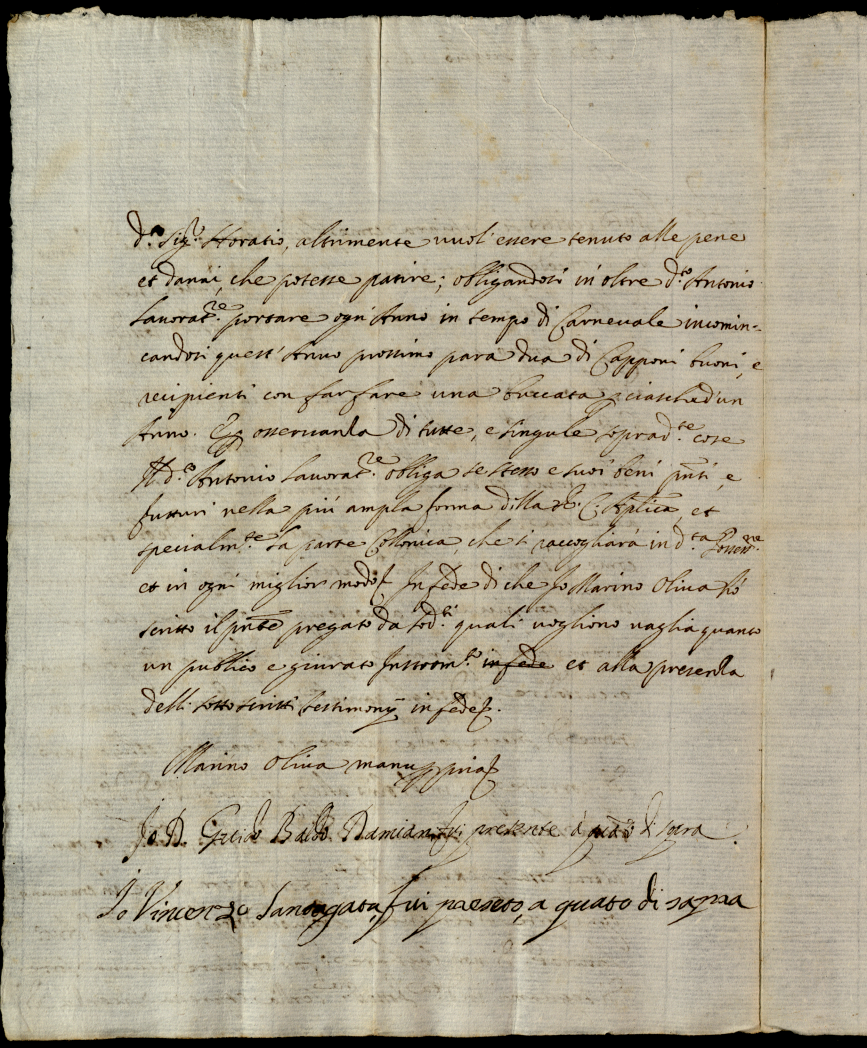 d.º Sig.re Horatio, altrimente vuol essere tenuto alle pene
et danni, che potesse patire; obligandosi in oltre d.to Antonio
Lavorat.re portare ogn'Anno in tempo di Carnevale incomin-
candosi quest'Anno prossimo para dua di Capponi buoni, e
recipienti con far fare una buccata p ciaschad'un
Anno. Et p osservanza di tutte, e singule soprad.te cose
Il d.º Antonio Lavorat.re obliga se stesso e suoi beni pn̄ti, e
futturi nella più ampla forma della R. C. Aplica, et
specialm.te la parte Collonica, che si raccogliarà in d.ta Possess.ne
et in ogni miglior modo. In fede di che Io Marino Oliva hò
scritto il pn̄te pregato da sod.ti quali vogliono vaglia quanto
un publico e giurato Instrom.to infede et alla presenza
delli sottoscritti testimonij in fede.
Marino Oliva manu ppria
Io D. Guido Baldo Damiani fui presente à quāto di sopra.
Io Vincenzo Santagata, fui preseto, a quato di sapra